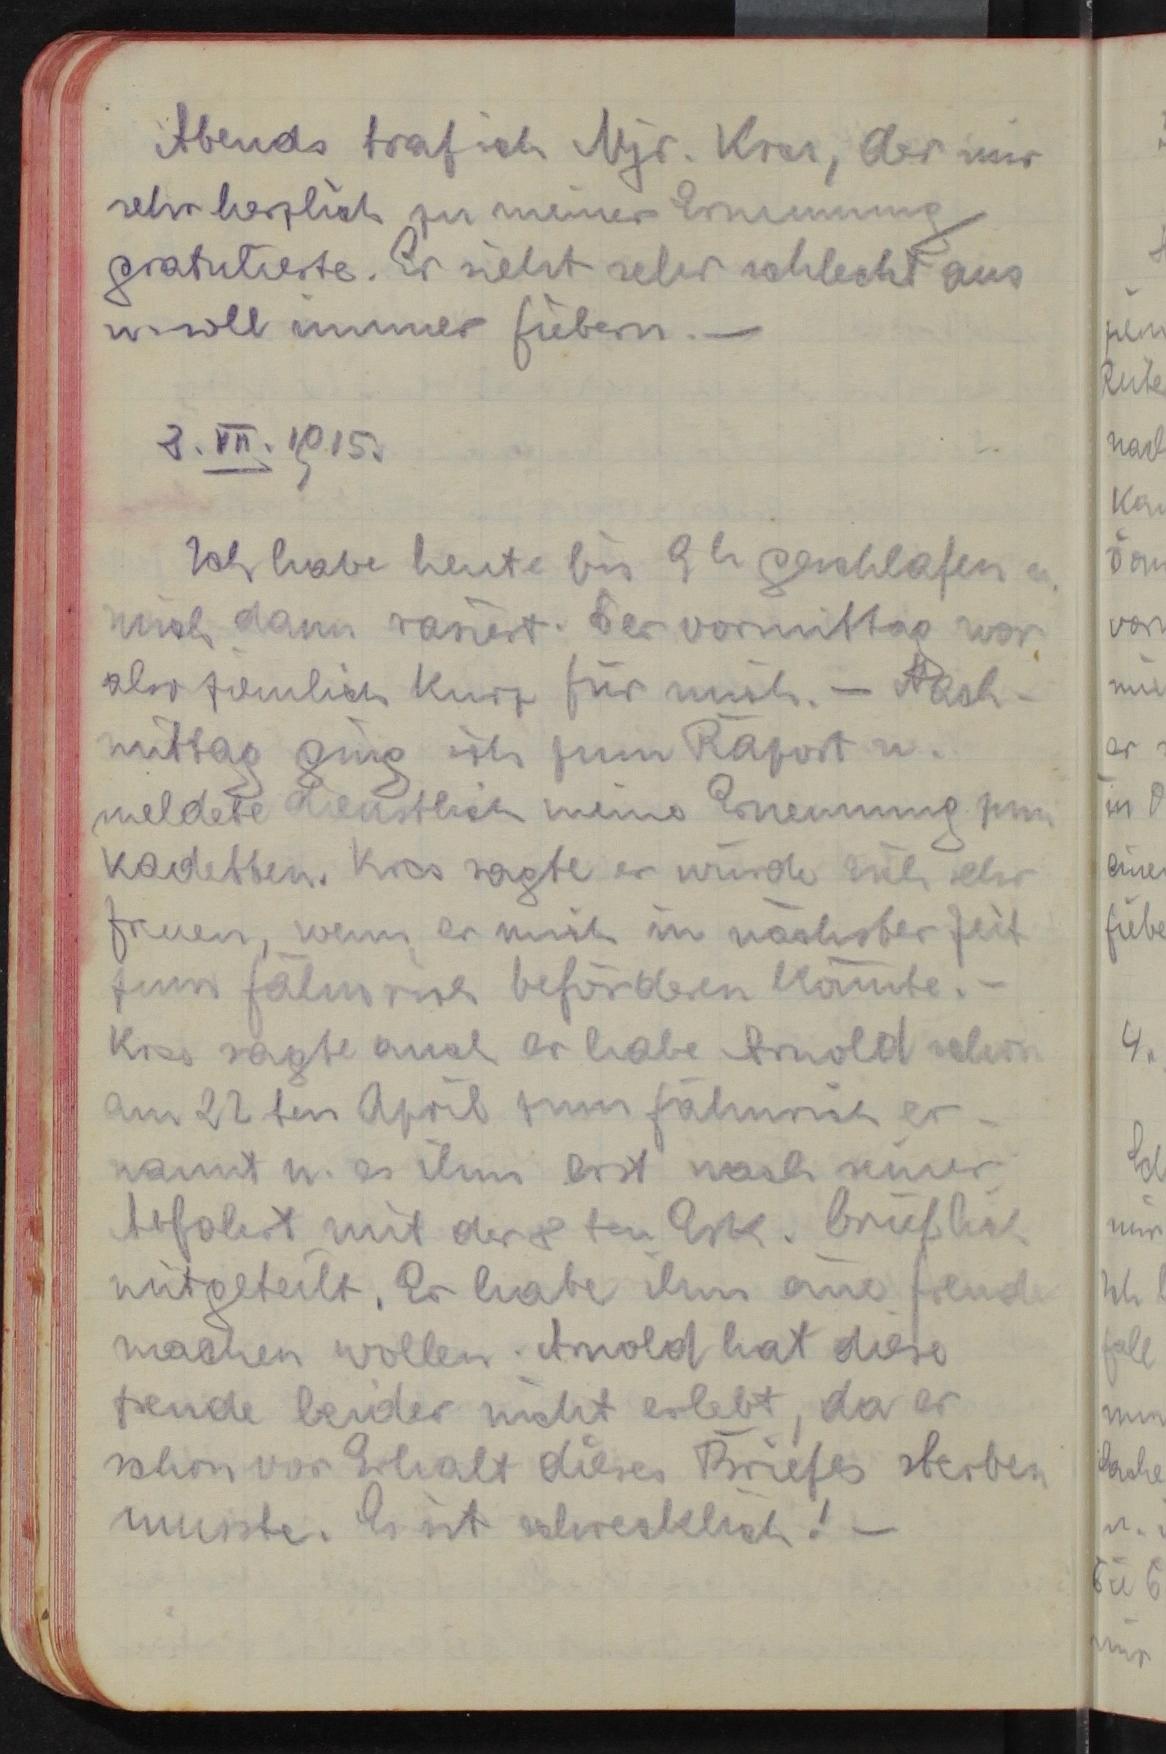 Abends traf ich Mjr. Kiss, der mir
sehr herzlich zu meiner Ernennung
gratulierte. Er sieht sehr schlecht aus
u. soll immer fiebern. —
3. VII. 1915.
Ich habe heute bis 9 h geschlafen u.
mich dann rasiert. Der vormittag war
also ziemlich kurz für mich. — Nach-
mittag ging ich zum Raport u.
meldete dienstlich meine Ernennung zum
Kadetten. Kiss sagte er würde sich sehr
freuen, wenn er mich in nächster Zeit
zum fähnrich befördern könnte. –
Kiss sagte auch er habe Arnold schon
am 22ten April zum fähnrich er-
nannt u. es ihm erst nach seiner
Abfahrt mit der 8ten Esk. brieflich
mitgeteilt. Er habe ihm eine freude
machen wollen. Arnold hat diese
freude leider nicht erlebt, da er
schon vor Erhalt dieses Briefes sterben
musste. Es ist schrecklich! —